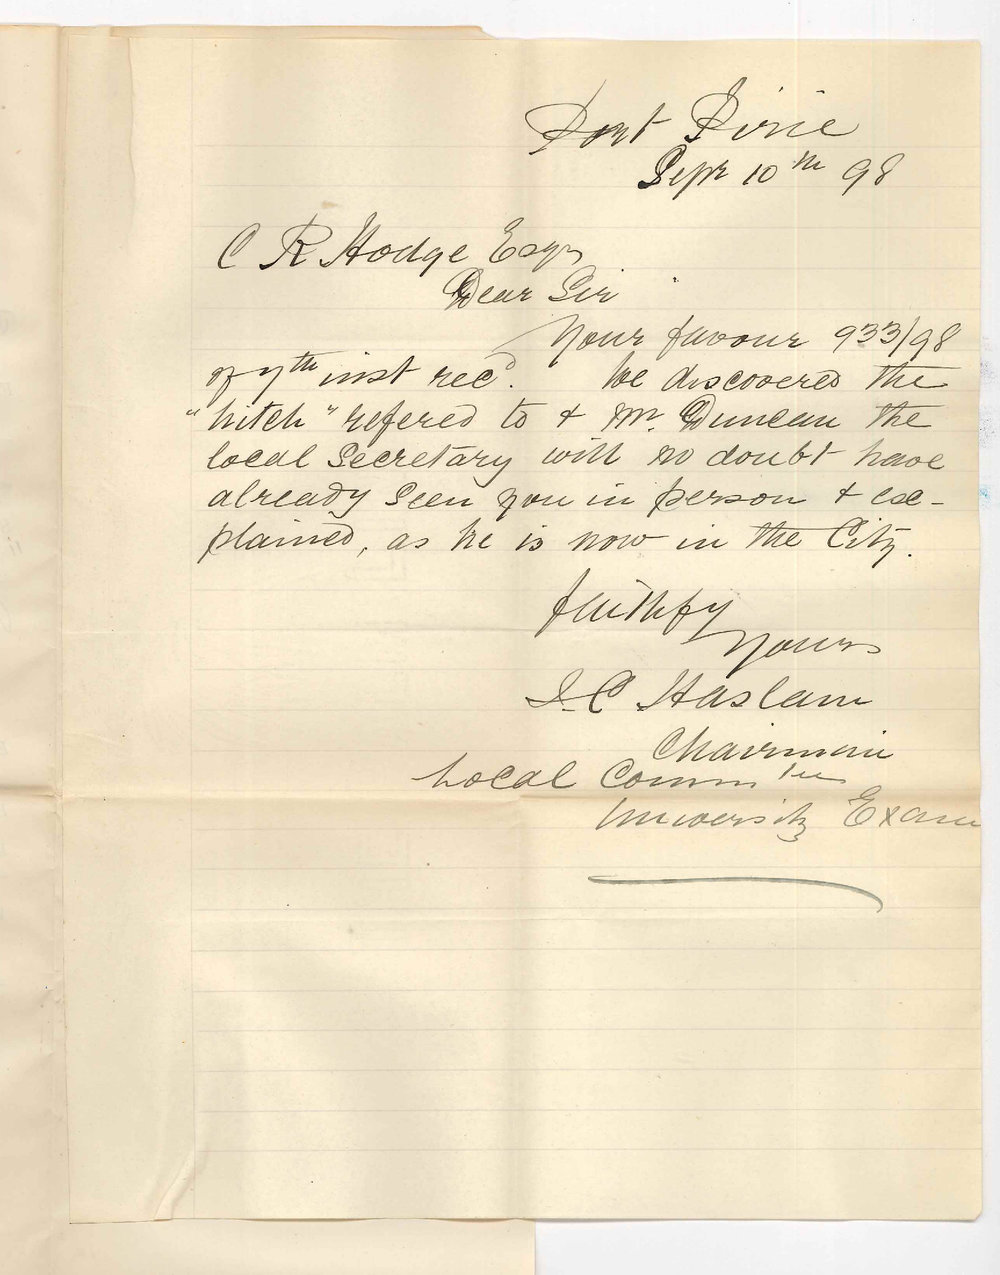 Port Pirie
Sepr 10th 98
C R Hodge Esqr
Dear Sir
Your favour 933/98
of 7th inst recd. We discovered the
"hitch" refered to & Mr. Duncan the
local Secretary will no doubt have
already seen you in person & ex-
plained, as he is now in the City.
Faithfy
Yours
J. C. Haslam
Chairman
Local Commtee
University Exam